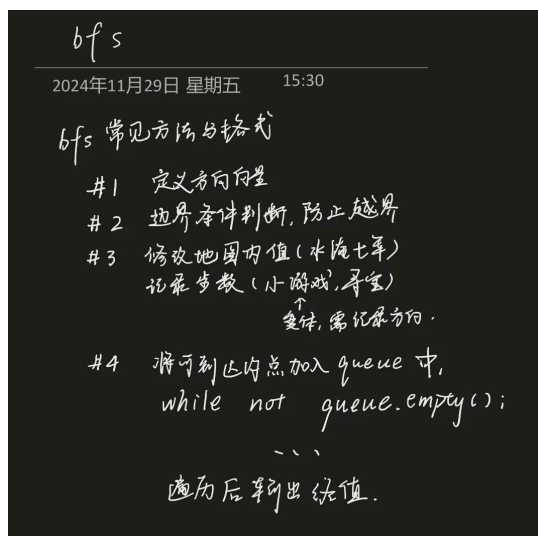 bfs
2024年11月29日 星期五 15:30
bfs 常见方法与格式
#1 定义方向向量
#2 边界条件判断,防止越界
#3 修改地图内值(水淹七军)
记录步数(小游戏,寻宝)
↑
变体,需记录方向.
#4 将可到达的点加入queue 中,
while not queue.empty();
、、、
遍历后输出终值.